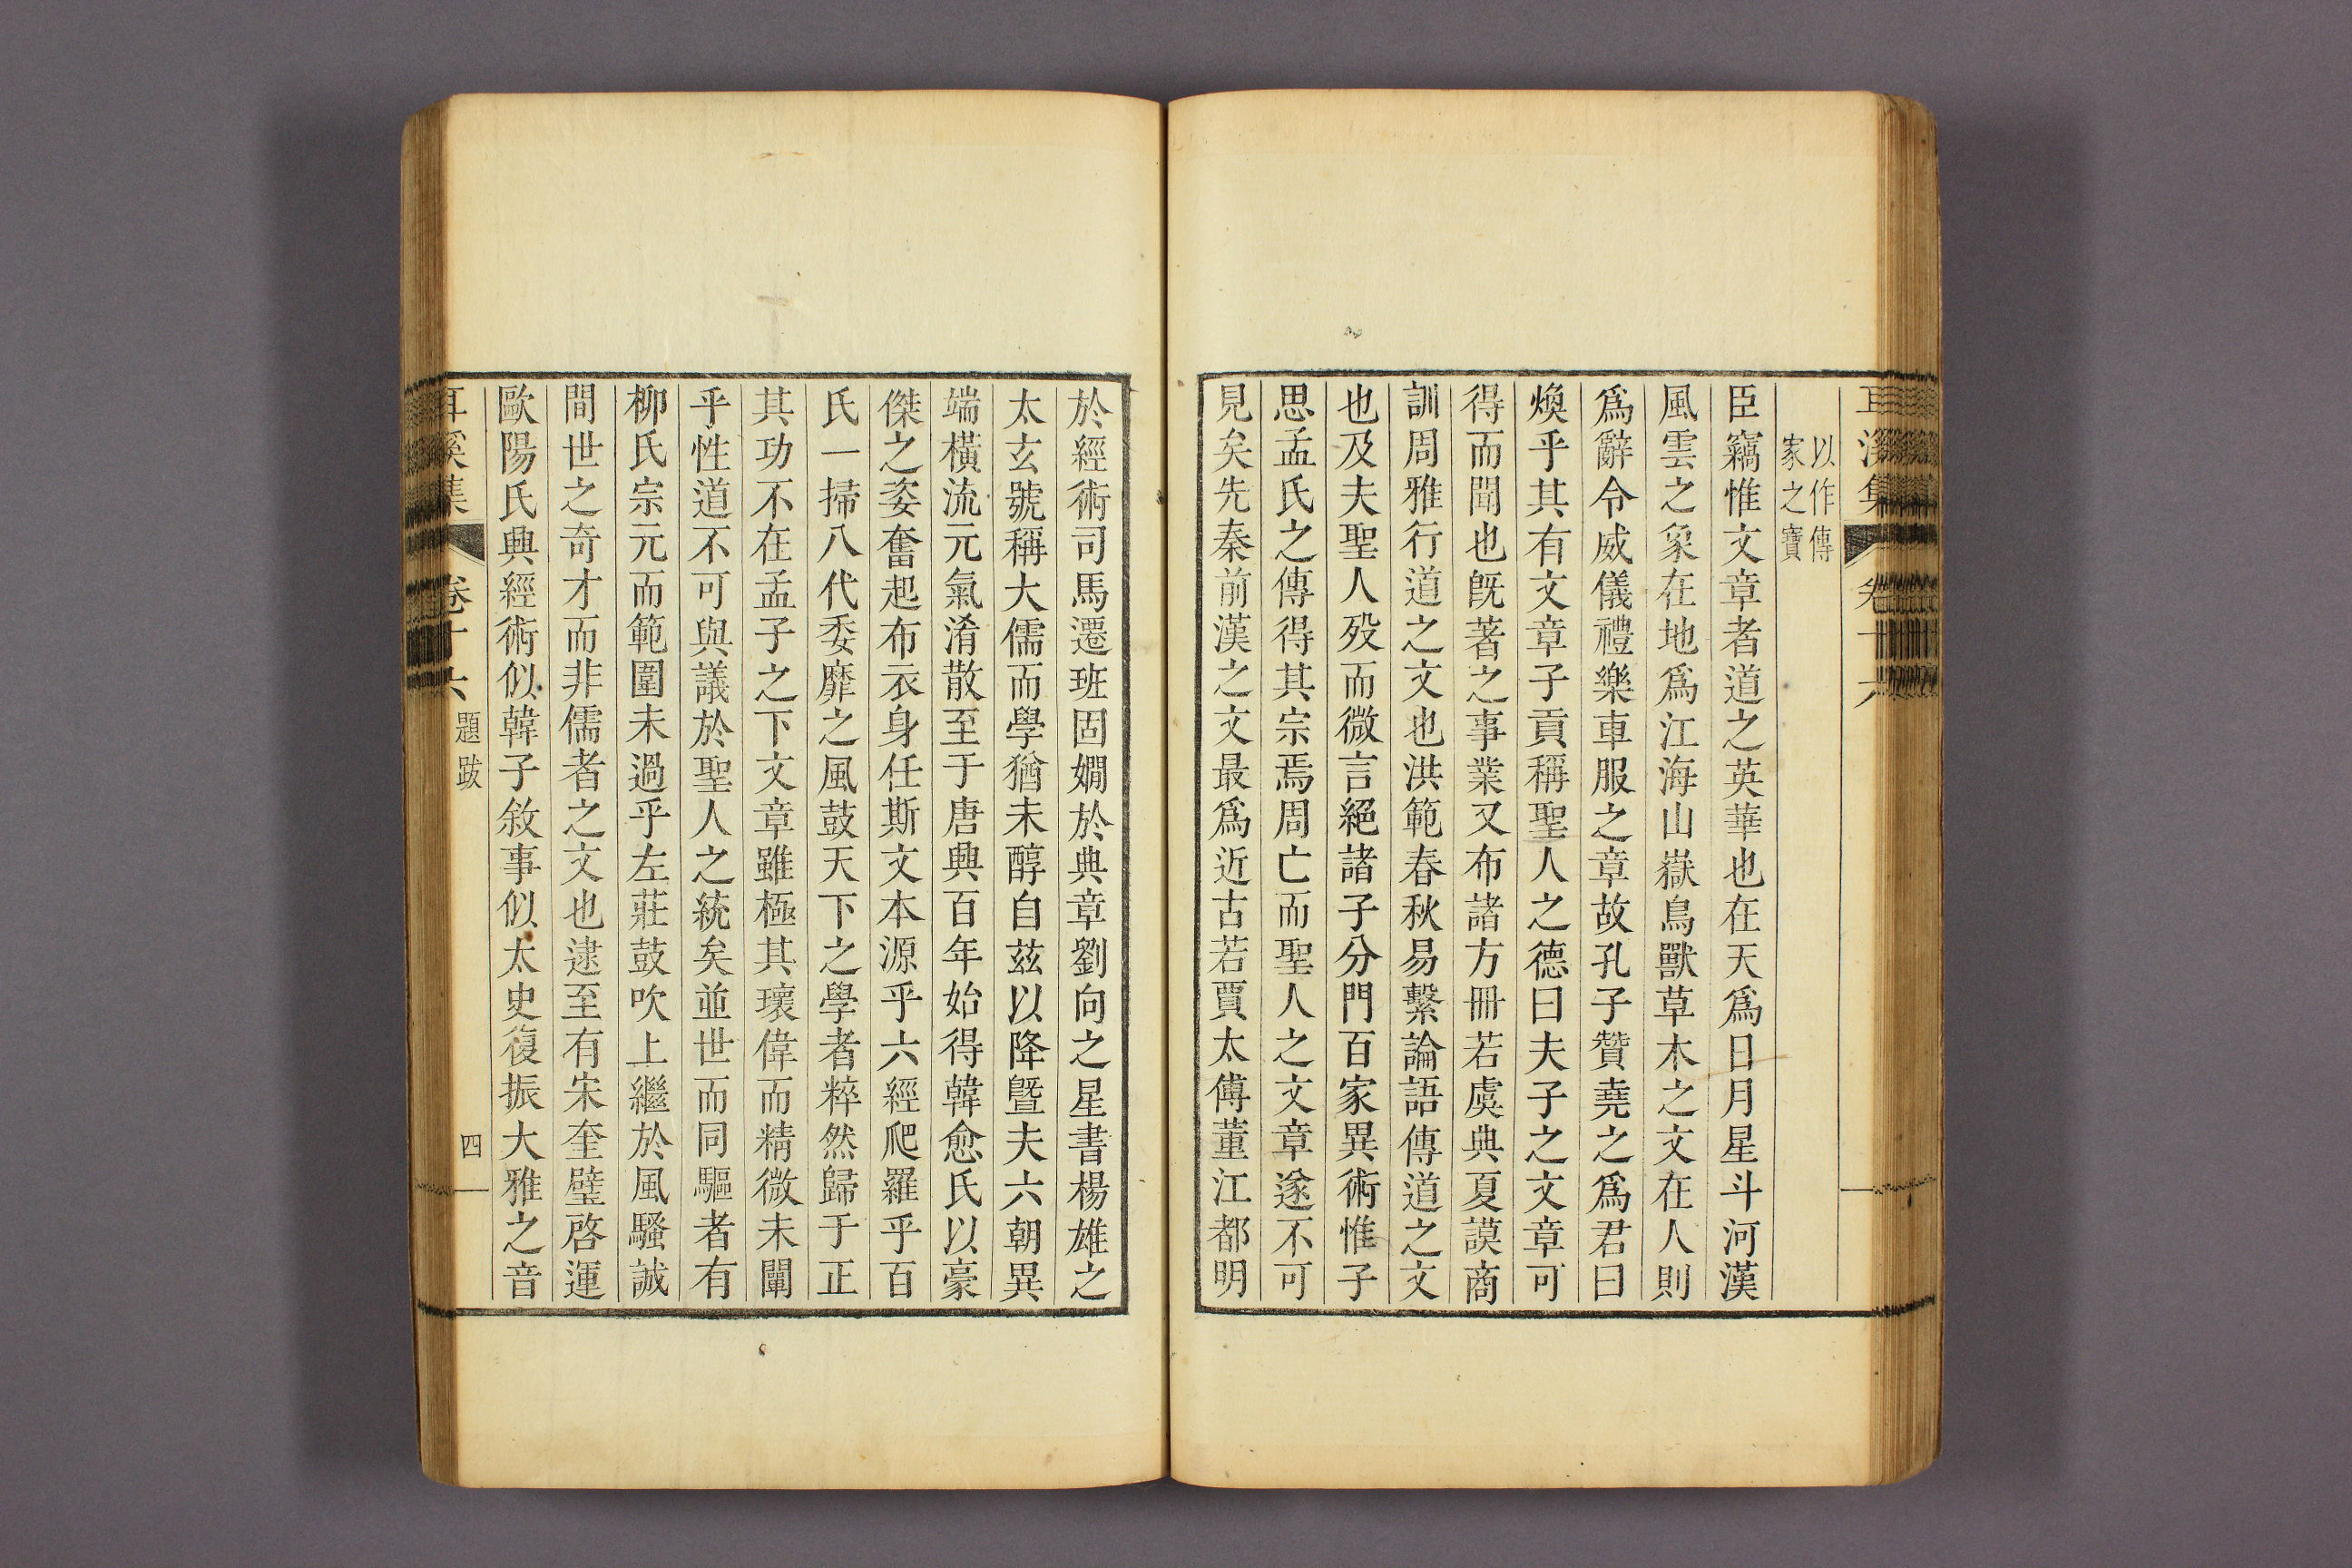 耳溪集 卷十六
以作傳
家之寶
臣竊惟文章者道之英華也在天爲日月星斗河漢
風雲之象在地爲江海山嶽鳥獸草木之文在人則
爲辭令威儀禮樂車服之章故孔子贊堯之爲君曰
煥乎其有文章子貢稱聖人之德曰夫子之文章可
得而聞也旣著之事業又布諸方冊若虞典夏謨商
訓周雅行道之文也洪範春秋易繫論語傳道之文
也及夫聖人歿而微言絕諸子分門百家異術惟子
思孟氏之傳得其宗焉周亡而聖人之文章遂不可
見矣先秦前漢之文最爲近古若賈太傅董江都明
於經術司馬遷班固嫺於典章劉向之星書楊雄之
太玄號稱大儒而學猶未醇自茲以降曁夫六朝異
端橫流元氣淆散至于唐興百年始得韓愈氏以豪
傑之姿奮起布衣身任斯文本源乎六經爬羅乎百
氏一掃八代委靡之風鼓天下之學者粹然歸于正
其功不在孟子之下文章雖極其瓌偉而精微未闡
乎性道不可與議於聖人之統矣並世而同驅者有
柳氏宗元而範圍未過乎左莊鼓吹上繼於風騷誠
間世之奇才而非儒者之文也逮至有宋奎璧啓運
歐陽氏興經術似韓子敘事似太史復振大雅之音
耳溪集 卷十六 題跋 四